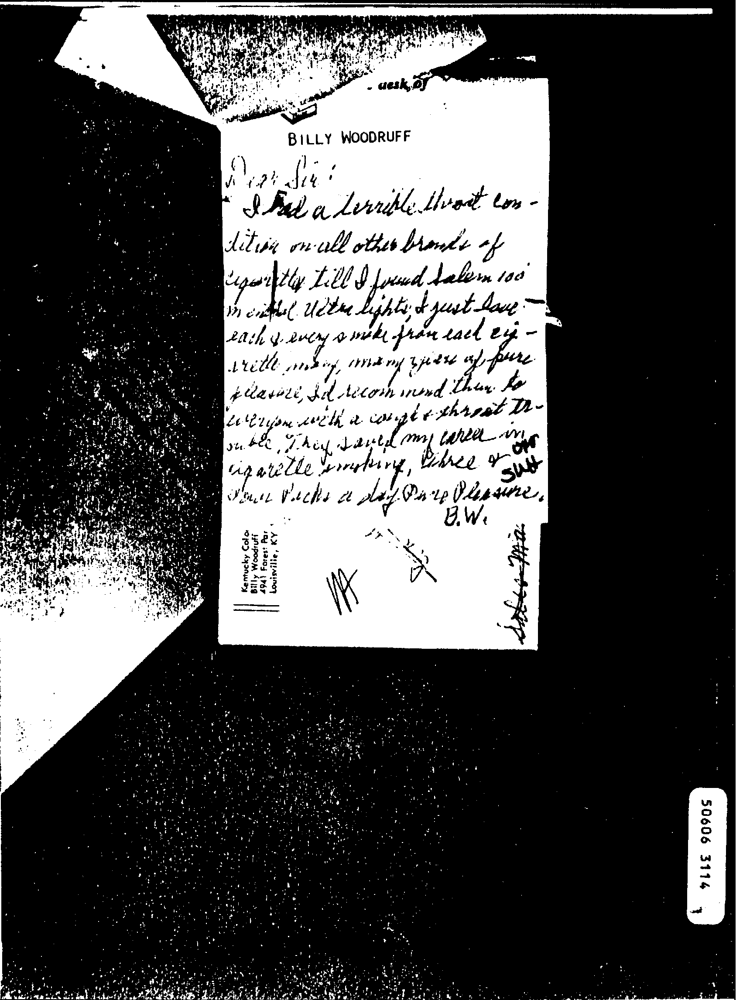 desk, of
BILLY WOODRUFF
Dear Sir:
I had a terrible throat con-
dition on all other brands of
till I found Salem 100
menthol Ultra lights, I just love
each & every smoke from each cig-
many, many years of pure
pleasure, I'd recommend them to
everyone with a cough & throat tr-
They saved my career in
cigarette smoking, three or
four Packs a day Pure Pleasure.
B.W.
Kentucky Colo
Billy Woodruff
4941 Forest Par
Louisville, KY
50606 3114